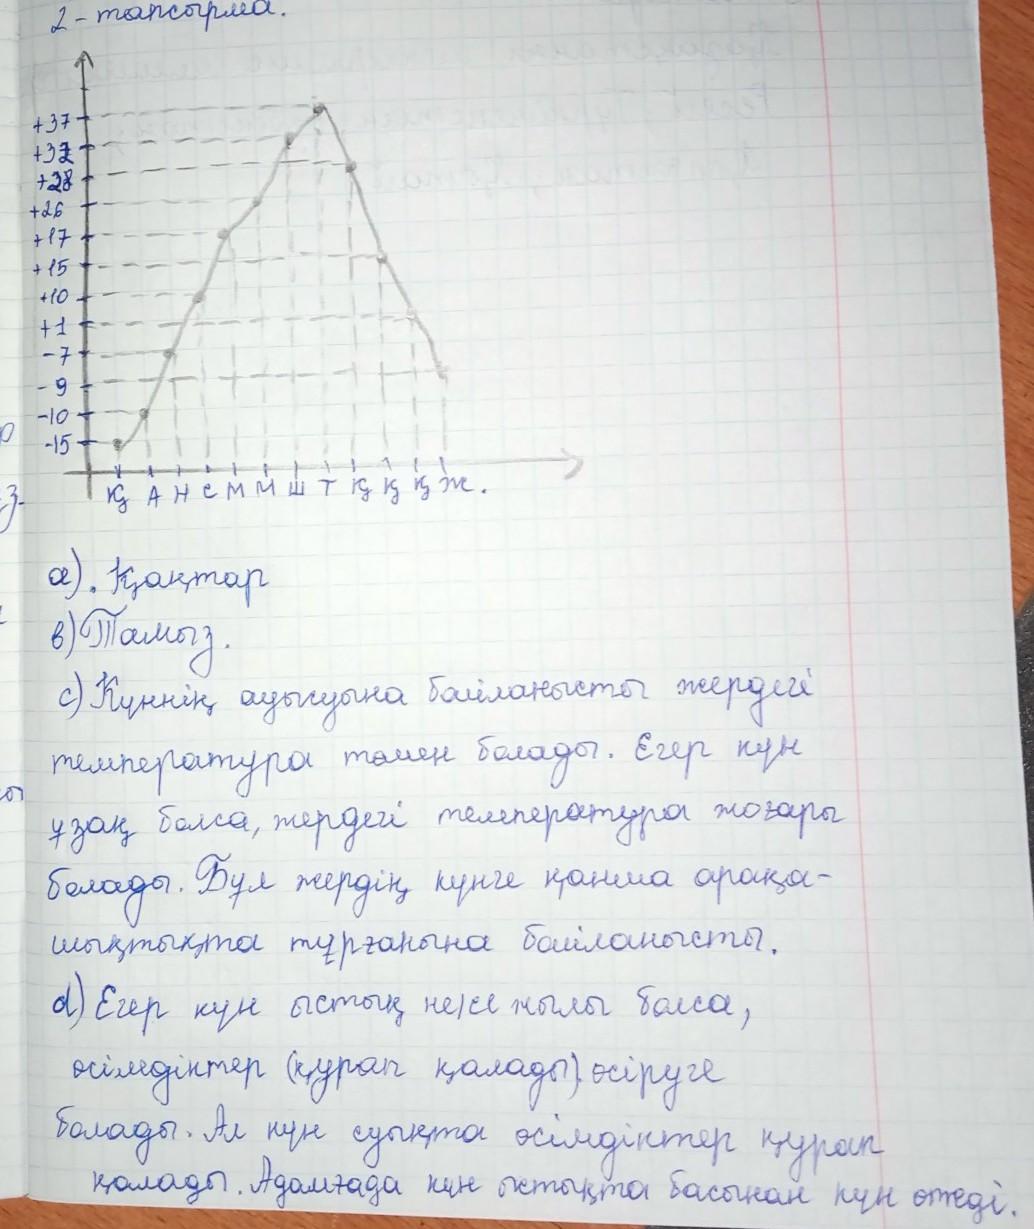 2-тапсырма.
+37
+32
+28
+26
+17
+15
+10
+1
-7
-9
-10
-15
Қ А Н С М М Ш Т Қ Қ Қ Ж.
а). Қаңтар
в) Тамыз.
с) Күннің ауысуына байланысты жердегі
температура төмен болады. Егер күн
ұзақ болса, жердегі температура жоғары
болады. Бұл жердің күнге қанша арақа-
шықтықта тұрғанына байланысты.
d) Егер күн ыстық не/се жылы болса,
өсімдіктер (құрап қалады). өсіруге
болады. Ал күн суықта өсімдіктер құрап
қалады. Адамғада күн ыстықта басынан күн өтеді.